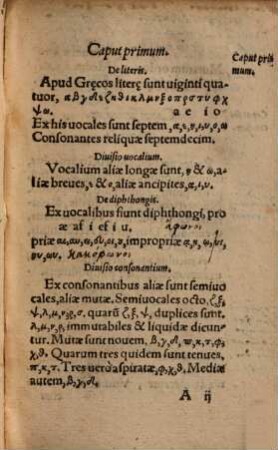 Caput primum.
Caput pri
mum.
De literis.
Apud Gręcos literę sunt uiginti qua
tuor, α β γ δ ε ζ η θ ι κ λ μ ν ξ ο π ρ σ τ υ φ χ
ψ ω.
a e i o
Ex his uocales sunt septem, α, ε, η, ι, υ, ο, ω
Consonantes reliquæ septemdecim.
Diuisio uocalium.
Vocalium aliæ longæ sunt, η & ω, a-
liæ breues, ε & ο, aliæ ancipites, α, ι, υ.
De diphthongis.
Ex uocalibus fiunt diphthongi, pro
æ
ἄφωνοι
priæ αι, αυ, ει, ευ, οι, ου, impropriæ ᾳ, ῃ, ῳ, υι,
ηυ, ωυ. κακοφωνοι
Diuisio consonantium.
Ex consonantibus aliæ sunt semiuo
cales, aliæ mutæ. Semiuocales octo, ζ, ξ,
ψ, λ, μ, ν, ρ, σ. quarũ ζ, ξ, ψ, duplices sunt.
λ, μ, ν, ρ, immutabiles & liquidæ dicun-
tur. Mutæ sunt nouem. β, γ, δ, π, κ, τ, φ,
χ, θ. Quarum tres quidem sunt tenues,
π, κ, τ. Tres uerò aspiratæ, φ, χ, θ. Mediæ
autem, β, γ, δ.
A ij